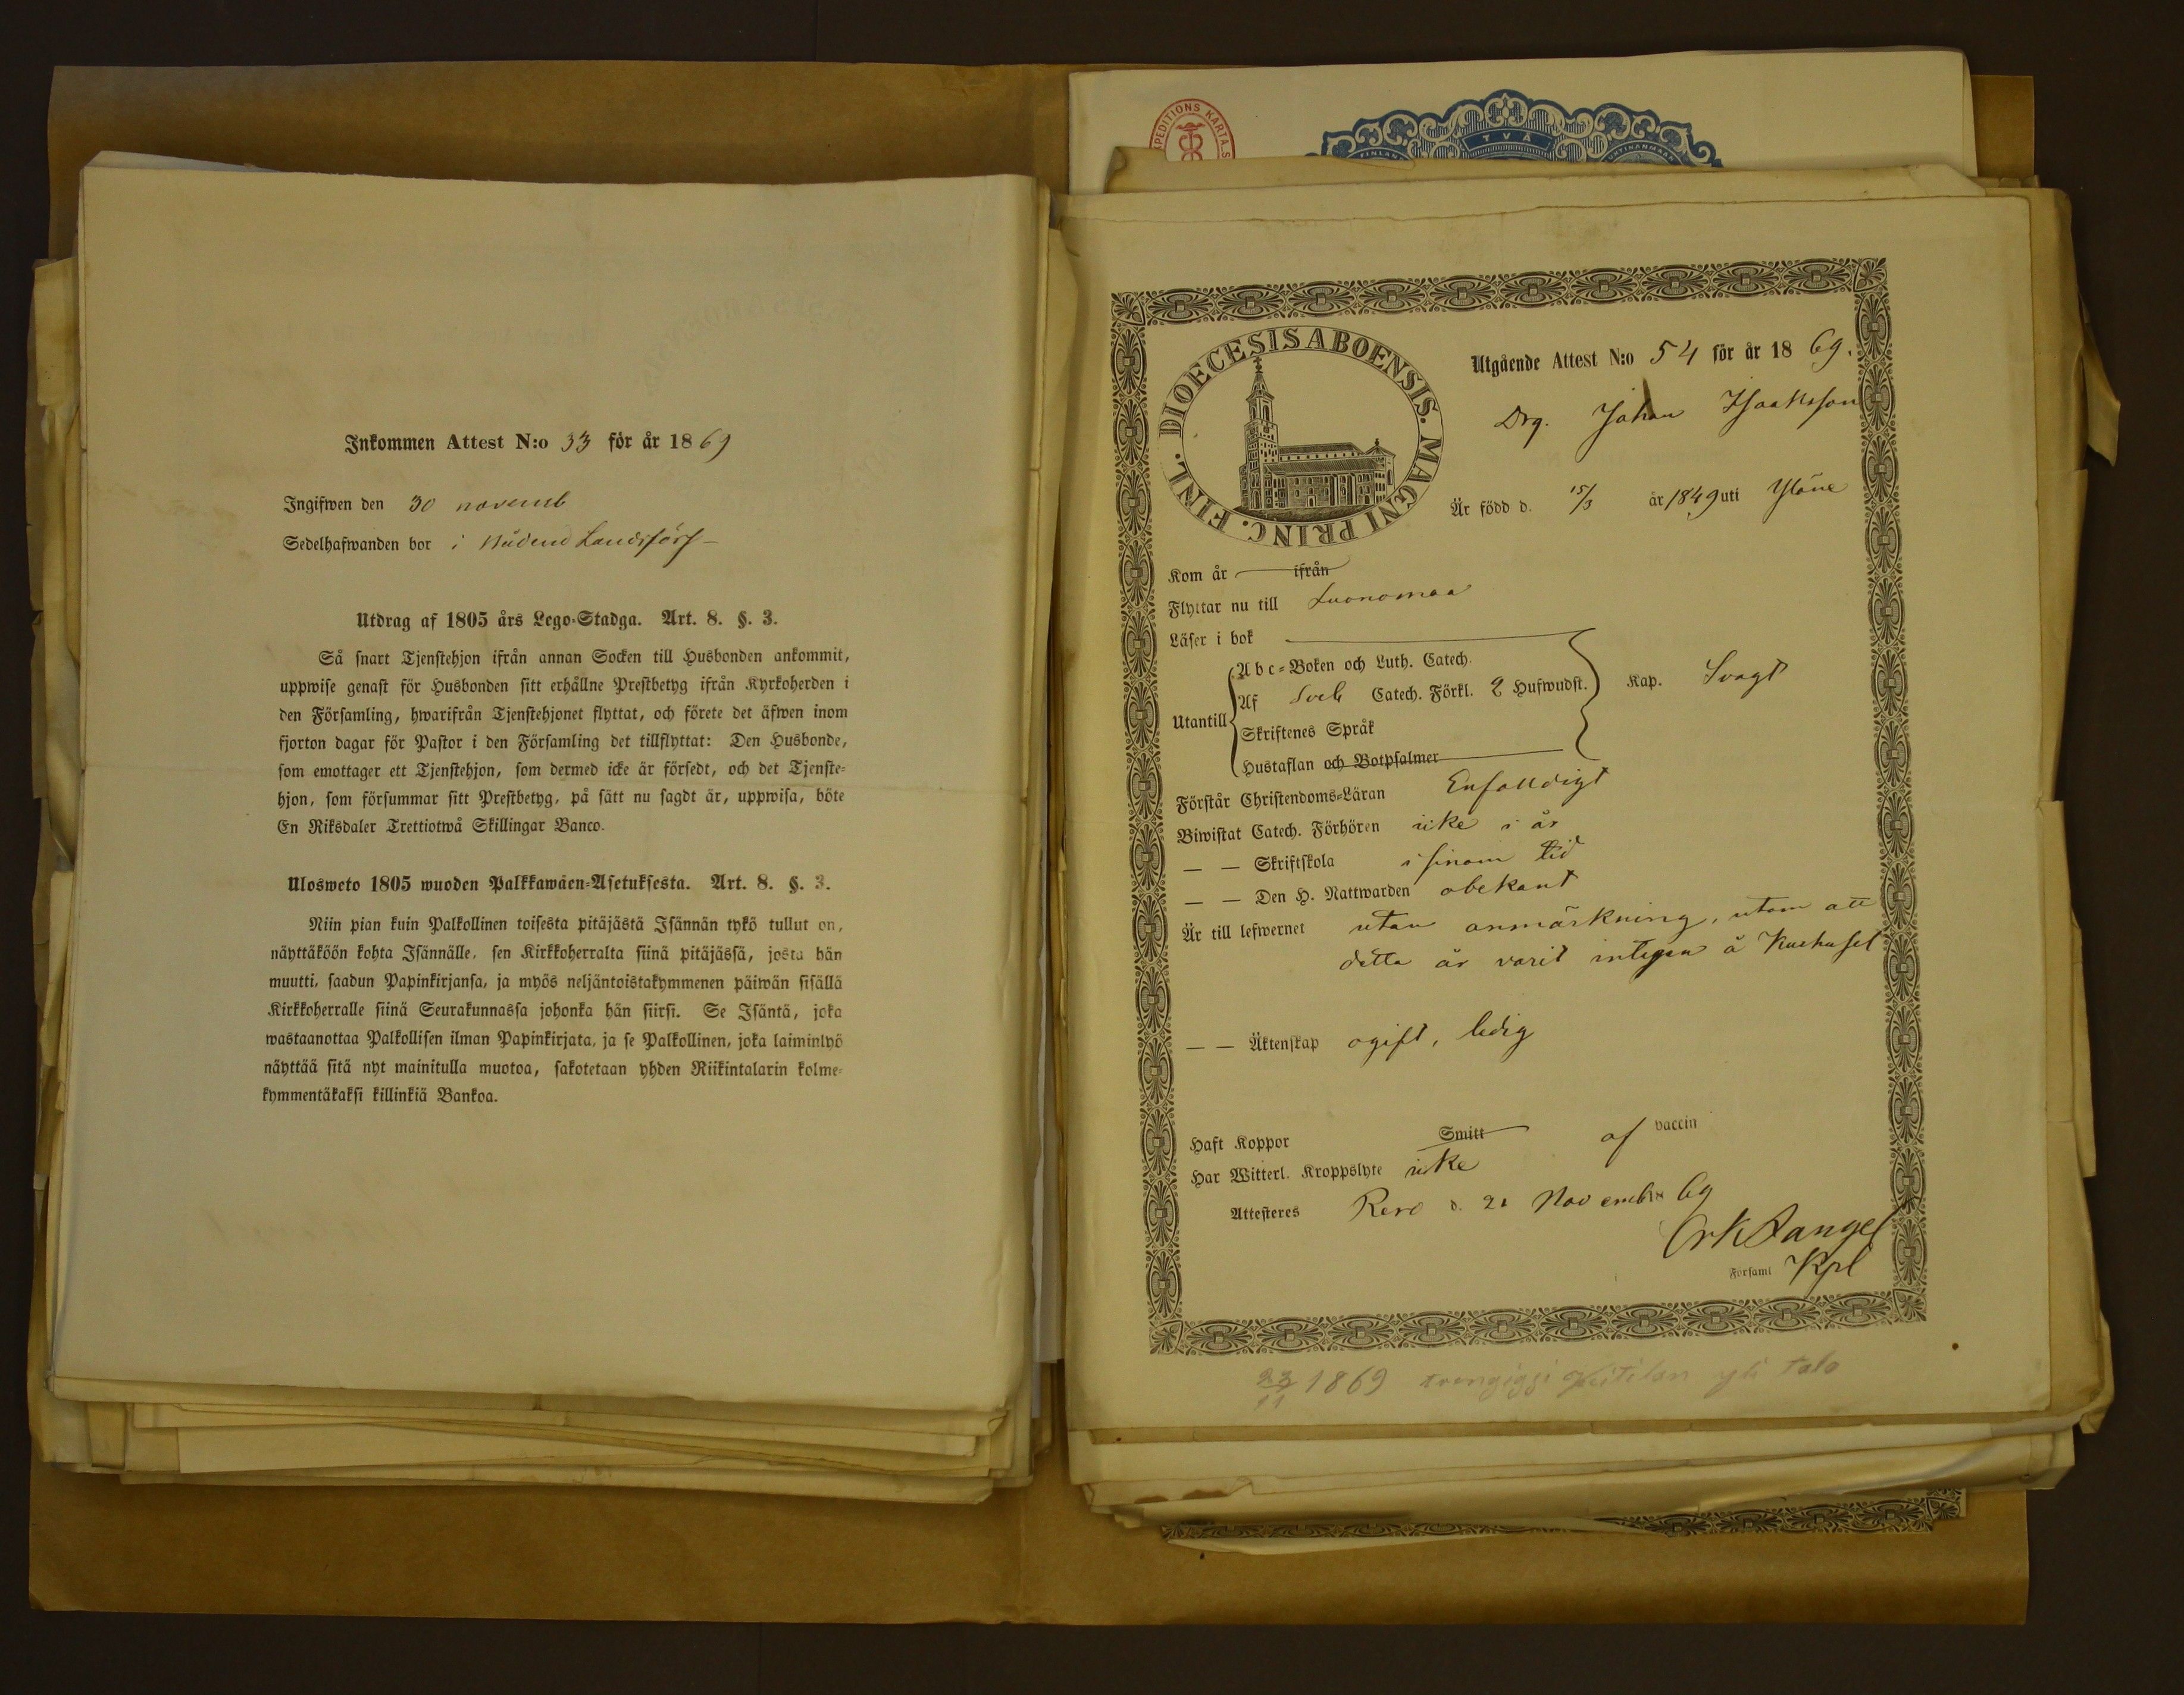 Inkommen Attest N:o 33 för år 1869
Ingifwen den 30 novemb
Sedelhafwanden bor i Landsförs-
Utdrag af 1805 års Lego-Stadga. Art. 8. §. 3.
Så snart Tjenstehjon ifrån annan Socken till Husbonden ankommit,
uppwise genast för Husbonden sitt erhållne Prestbetyg ifrån Kyrkoherden i
den Församling, hwarifrån Tjenstehjonet flyttat, och förete det äfwen inom
fjorton dagar för Pastor i den Församling det tillflyttat: Den Husbonde,
som emottager ett Tjenstehjon, som dermed icke är försedt, och det Tjenste-
hjon, som försummar sitt Prestbetyg, på sätt nu sagdt är, uppwisa, böte
En Riksdaler Trettiotwå Skillingar Banco.
Ulosweto 1805 wuoden Palkkawäen-Asetuksesta. Art. 8. §. 3.
Niin pian kuin Palkollinen toisesta pitäjästä Isännän tykö tullut on,
näyttäköön kohta Isännälle, sen Kirkkoherralta siinä pitäjässä, josta hän
muutti, saadun Papinkirjansa, ja myös neljäntoistakymmenen päiwän sisällä
Kirkkoherralle siinä Seurakunnassa johonka hän siirsi. Se Isäntä, joka
wastaanottaa Palkollisen ilman Papinkirjata, ja se Palkollinen, joka laiminlyö
näyttää sitä nyt mainitulla muotoa, sakotetaan yhden Riikintalarin kolme-
kymmentäkaksi killinkiä Bankoa.
EXPEDITIONS KARTA S
TVÅ
FINLAN
DIOECESIS ABOENSIS. MAGNI PRINC. FINL.
Utgående Attest N:o 54 för år 1869.
Drg. Johan Isaksson
Är född d. 15/3 år 1849 uti Yläne
Kom år ifrån
Flyttar nu till Luonomaa
Läser i bok
Utantill
Abc-Boken och Luth. Catech.
Af Sveb Catech. Förkl. 2 Hufwudst.
Skriftenes Språk
Hustaflan och Botpsalmer
Kap. Svagt
Förstår Christendoms-Läran Enfalldigt
Biwistat Catech. Förhören icke i år
— — Skriftskola i sinom tid
— — Den H. Nattwarden obekant
Är till lefwernet utan anmärkning, utom att
detta år varit intagen å Kurhuset
— — Äktenskap ogift, ledig
Haft Koppor Smitt af vaccin
Har Witterl. Kroppslyte icke
Attesteres Reso d. 21 November 1869
Langel
Församl Kpl
23/11 1869 yli talo